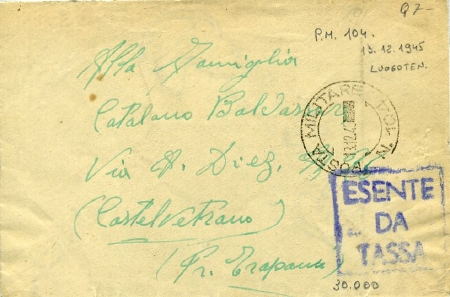 Q7-
P.M. 104.
13.12.1945
LUOGOTEN.
Alla Famiglia
Catalano Baldassare
Via A. Diez,
(Castelvetrano)
(Pr. Trapani)
POSTA MILITARE
13.12.4
ESENTE
DA
TASSA
30.000